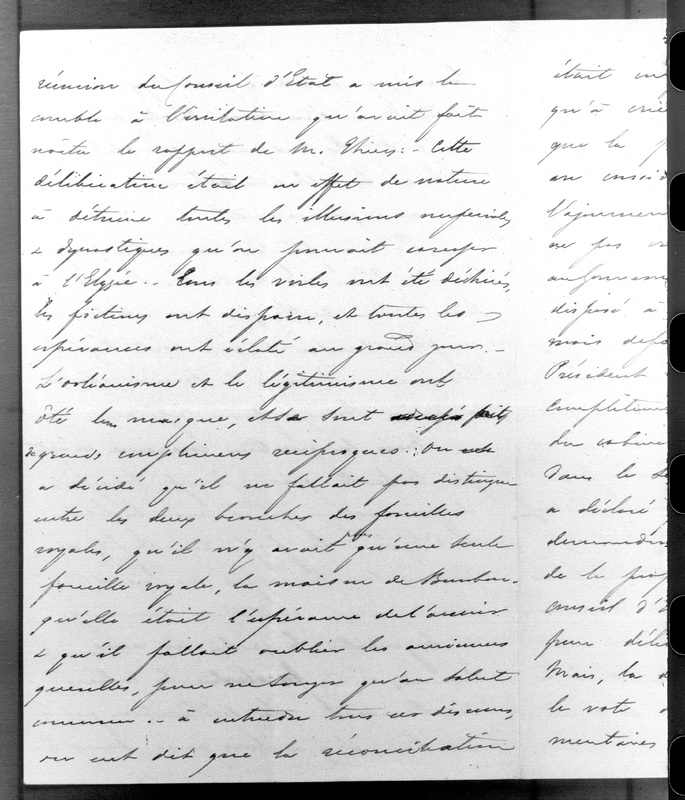 réunion du Conseil d'Etat a mis le
comble à l'irritation qu'avait fait
naître le rapport de M. Thiers. - Cette
délibération était en effet de nature
à détruire toutes les illusions
& dynastiques qu'on pouvait
à l'Elysée. - Tous les voiles ont été déchirés,
les fictions ont disparu, et toutes les
espérances ont éclaté au grand jour. -
L'orléanisme et le légitimisme ont
ôté leur masque, et se sont faits
de grands complimens réciproques. On
a décidé qu'il ne fallait pas distinguer
entre les deux branches des familles
royales, qu'il n'y avait plus qu'une seule
famille royale, la maison de Bourbon,
qu'elle était l'espérance de l'avenir
& qu'il fallait oublier les anciennes
querelles, pour ne songer qu'au salut
commun. - à entendre tous ces discours,
on eut dit que la réconciliation
était
qu'à
que la
au
l'ajournement
ne pas
au Gouvernem
disposé à
mais
Président
complètement
du cabin
Dans le
a déclaré
demander
de la prop
conseil d'E
pour déli
Mais, la
le vote
mentaires